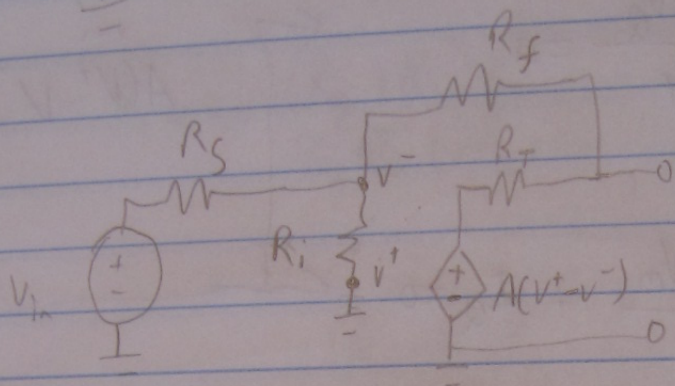 R_f
R_S
V^-
R_T
R_i
V^+
V_in
+
-
+
-
A(V^+-V^-)